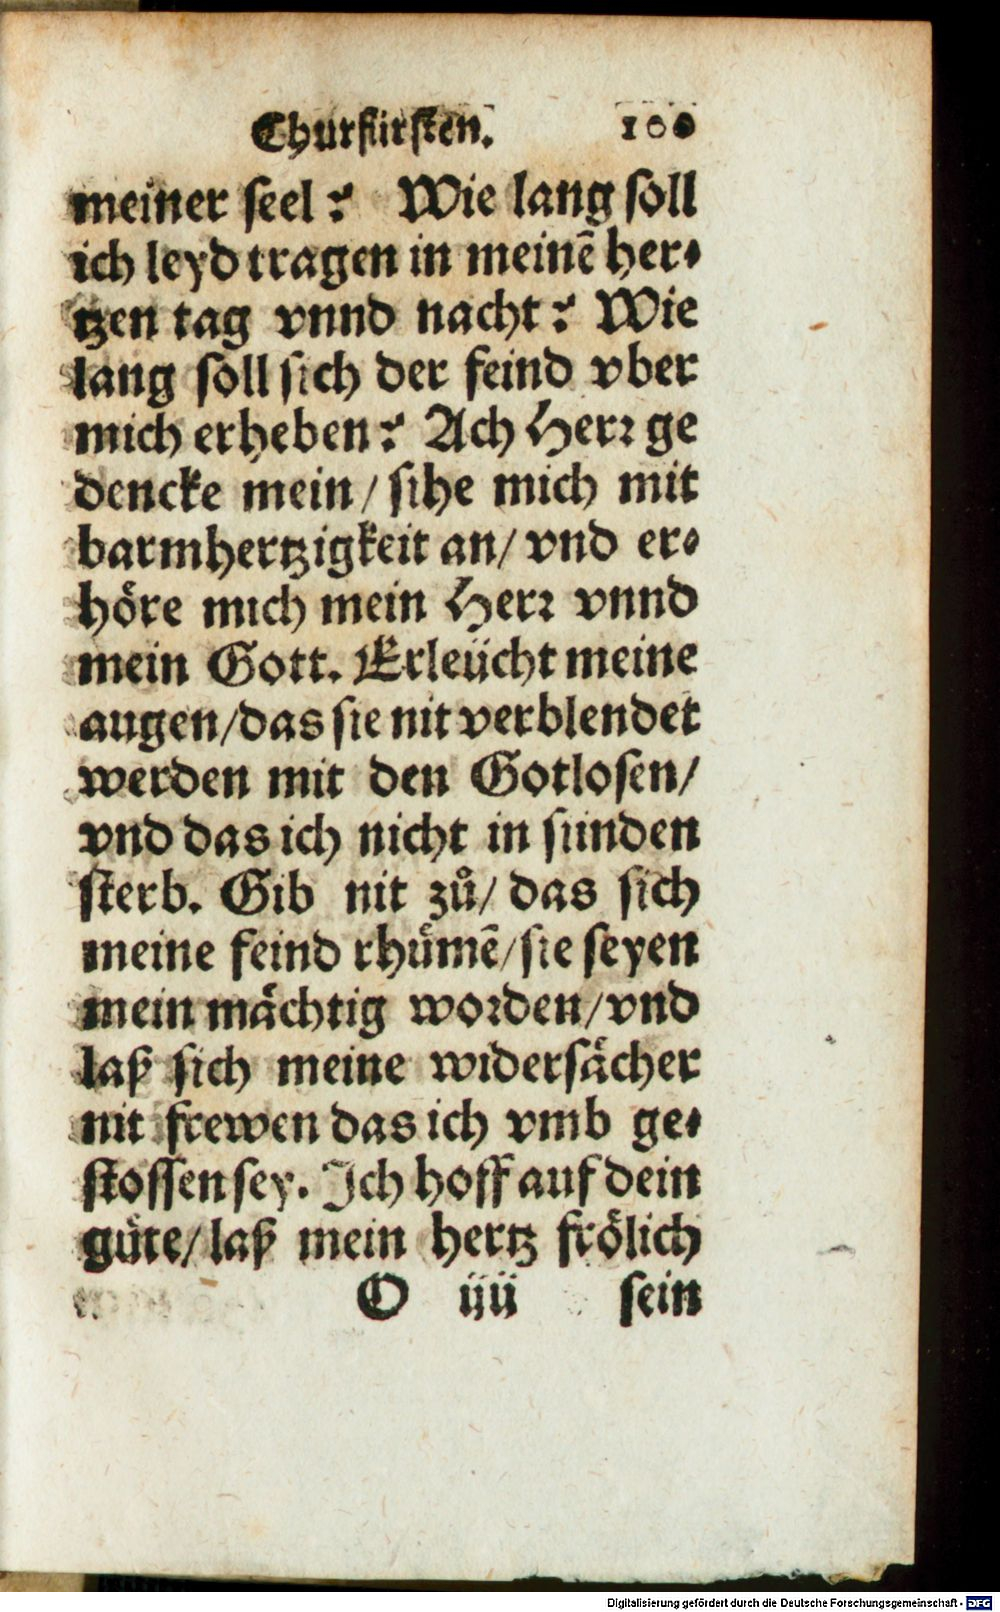 Churfürsten. 100
meiner seel? Wie lang soll
ich leyd tragen in meinē her-
tzen tag vnnd nacht? Wie
lang soll sich der feind vber
mich erheben? Ach Herꝛ ge
dencke mein/ sihe mich mit
barmhertzigkeit an/ vnd er-
höre mich mein Herꝛ vnnd
mein Gott. Erleücht meine
augen/das sie nit verblendet
werden mit den Gotlosen/
vnd das ich nicht in sünden
sterb. Gib nit zů/ das sich
meine feind rhümē/sie seyen
mein mächtig woꝛden/vnd
laß sich meine widersächer
nit frewen das ich vmb ge-
stossen sey. Ich hoff auf dein
güte/laß mein hertz frölich
O iiij sein
Digitalisierung gefördert durch die Deutsche Forschungsgemeinschaft - DFG